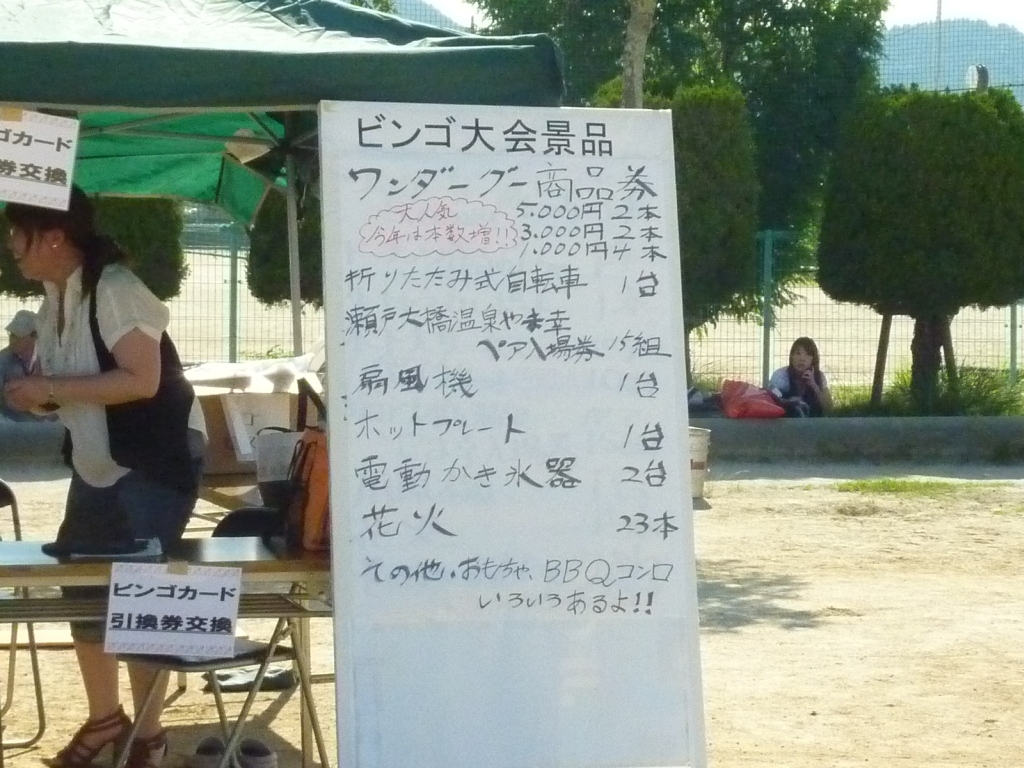 ゴカード
券交換
ビンゴ大会景品
ワンダーグー商品券
大人気
今年は本数増!!
5.000円 2本
3.000円 2本
1.000円 4本
折りたたみ式自転車 1台
瀬戸大橋温泉や幸
ペア入場券 15組
扇風機 1台
ホットプレート 1台
電動かき氷器 2台
花火 23本
その他.おもちゃ、BBQコンロ
いろいろあるよ!!
ビンゴカード
引換券交換